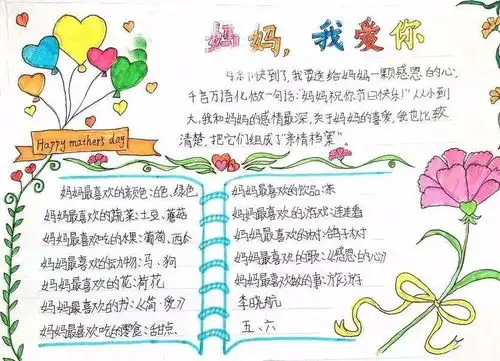 妈妈,我爱你
快到了,我要送给妈妈一颗感恩的心,
千言万语化做一句话:"妈妈祝你节日快乐!"从小到
大,我和妈妈的感情最深,关于妈妈的喜爱,我也比较
清楚,把它们组成了"亲情档案"。
Happy mather's day
妈妈最喜欢的颜色:白色、绿色
妈妈最喜欢的蔬菜:土豆、蘑菇
妈妈最喜欢吃的水果:葡萄、西瓜
妈妈最喜欢的动物:马、狗
妈妈最喜欢的花:荷花
妈妈最喜欢的书:《简·爱》
妈妈最喜欢吃的零食:甜点
妈妈最喜欢的饮品:茶
妈妈最喜欢的游戏:连连看
妈妈最喜欢的树:鸽子树
妈妈最喜欢的歌:《感恩的心》
妈妈最喜欢做的事:旅游
李晓航
五、六